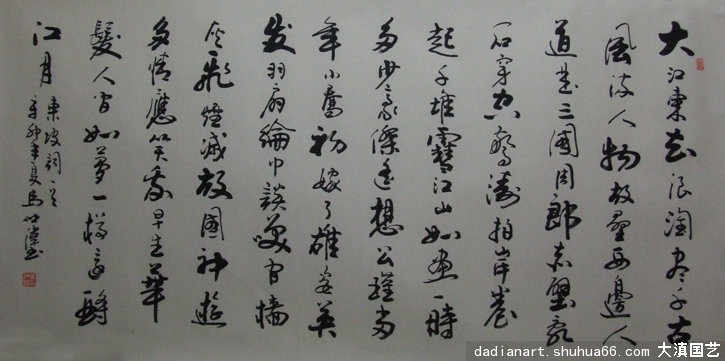 大江東去浪淘盡千古
風流人物故壘西邊人
道是三國周郎赤壁亂
石穿空驚濤拍岸卷
起千堆雪江山如畫一時
多少豪傑遙想公瑾當
年小喬初嫁了雄姿英
发羽扇綸巾談笑间檣
灰飛煙滅故國神遊
多情應笑我早生華
髮人间如夢一樽還酹
江月
東坡詞一首
辛卯年夏馬書
dadianart.shuhua66.com 大滇国艺